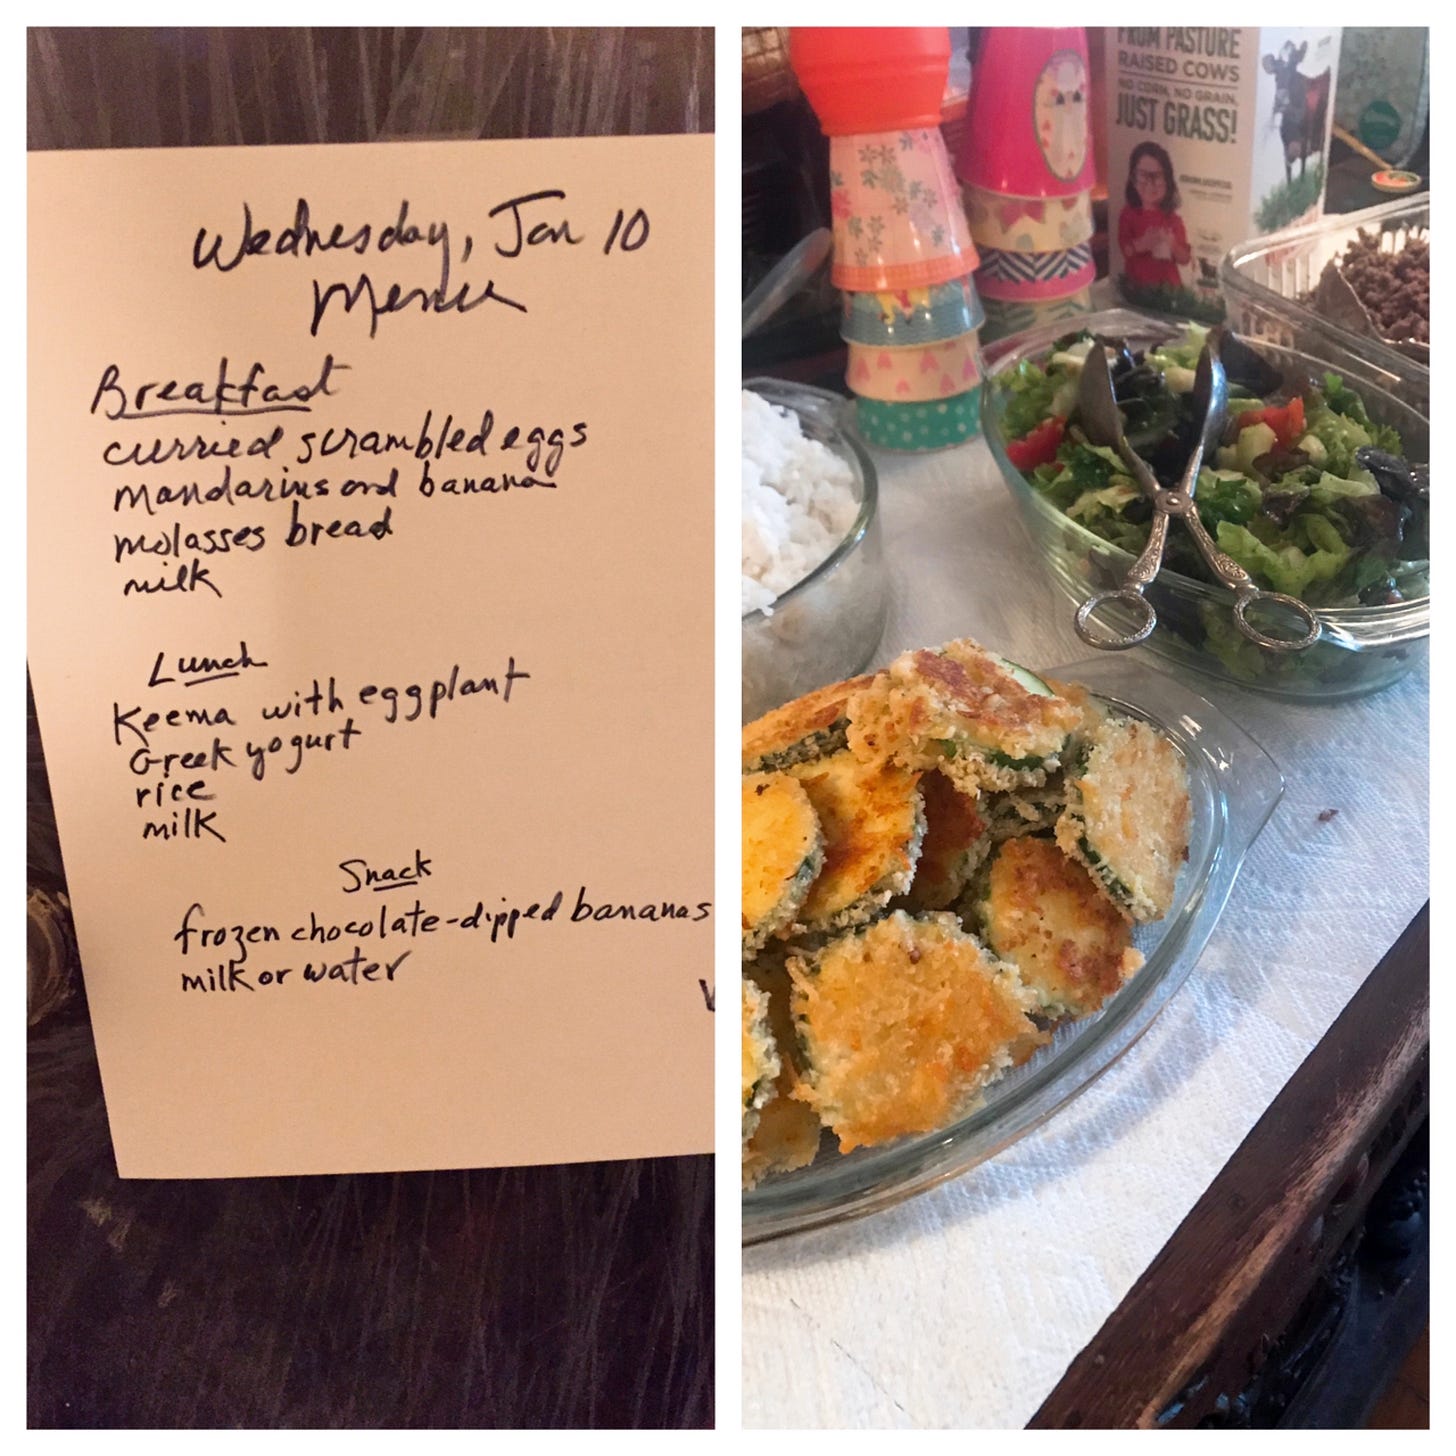 Wednesday, Jan 10
Menu
Breakfast
curried scrambled eggs
mandarins and banana
molasses bread
milk
Lunch
Keema with eggplant
Greek yogurt
rice
milk
Snack
frozen chocolate-dipped bananas
milk or water
FROM PASTURE
RAISED COWS
NO CORN, NO GRAIN,
JUST GRASS!